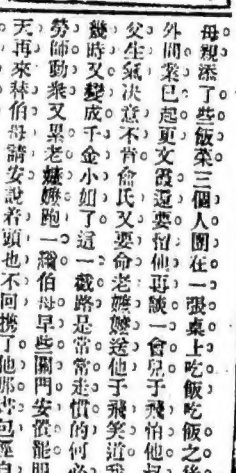 母親添了些飯菜三個人團在一張桌上吃飯吃飯之後
外間業已起更文霞還要留他再談一會兒于飛怕他
父生氣決意不肯俞氏又要命老嬷嬷送他于飛笑道我
幾時又變成千金小姐了這一截路是常常走慣的何必
勞師動衆又累老嬷嬷跑一趟伯母早些關門安置罷明
天再來拜伯母請安說着頭也不回携了他那書包逕自